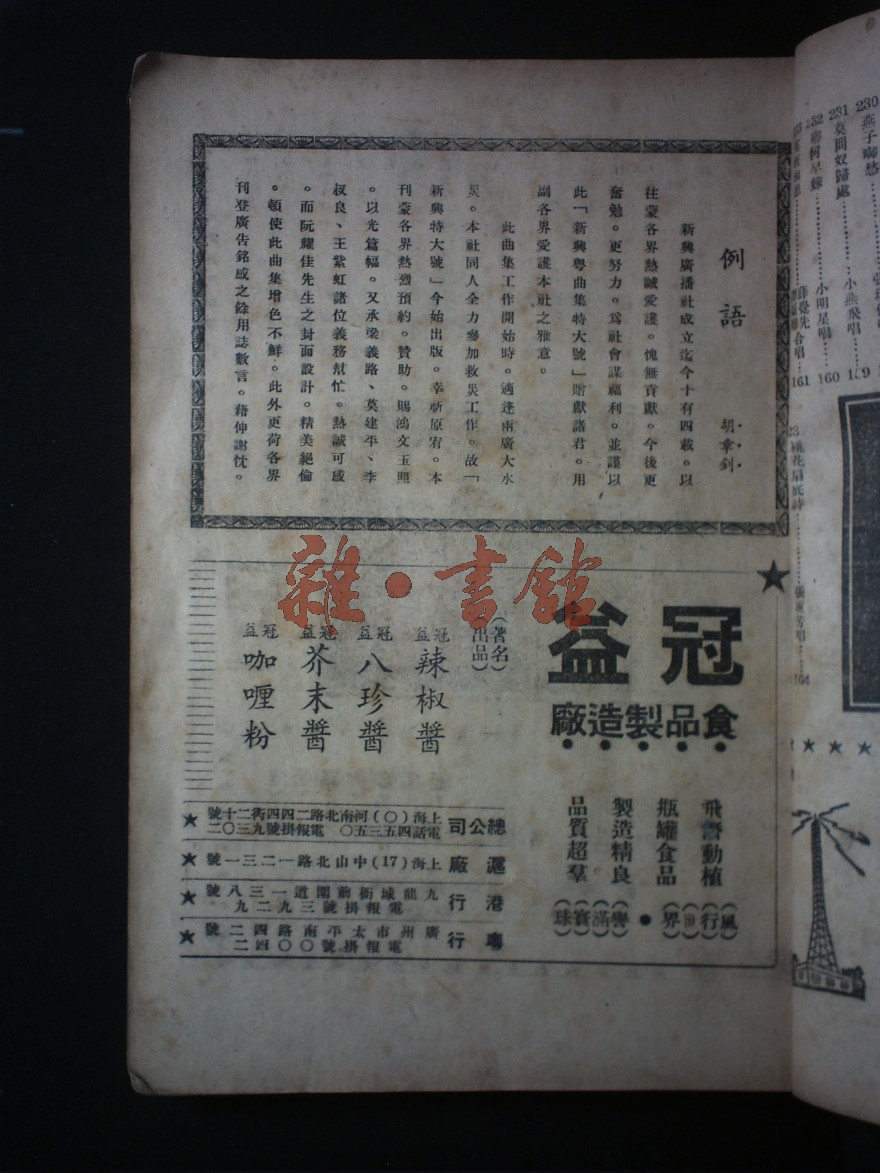 例語
胡章釗
新興廣播社成立迄今十有四載。以
往蒙各界熱誠愛護。愧無貢獻。今後更
奮勉。更努力。為社會謀福利。並謹以
此「新興粵曲集特大號」贈獻諸君。用
副各界愛護本社之雅意。
此曲集工作開始時。適逢兩廣大水
災。本社同人全力參加救災工作。故「
新興特大號」今始出版。幸祈原宥。本
刊蒙各界熱烈預約。贊助。賜鴻文玉照
。以光篇幅。又承梁義路、莫建平、李
叔良、王紫虹諸位義務幫忙。熱誠可感
。而阮耀佳先生之封面設計。精美絕倫
。頓使此曲集增色不鮮。此外更荷各界
刊登廣告銘感之餘用誌數言。藉伸謝忱。
雜·書館
冠益
食品製造廠
(著名)
(出品)
冠益
辣椒醬
冠益
八珍醬
冠益
芥末醬
冠益
咖喱粉
飛潛動植
瓶罐食品
製造精良
品質超羣
(風)(行)(世)(界)
(譽)(滿)(寰)(球)
總公司
上海(〇)河南北路二四四衖二十號
電話四五三五〇 電報掛號九三〇二
滬廠
上海(17)中山北路一二三一號
港行
九龍城衙前圍道一三八號
電報掛號三九二九
粵行
廣州市太平南路四二號
電報掛號〇〇四二
230 燕子啣愁
231 莫問奴歸處……小燕飛唱… 159
232 ……小明星唱… 160
薛覺先
合唱… 161
桃花扇底詩
164